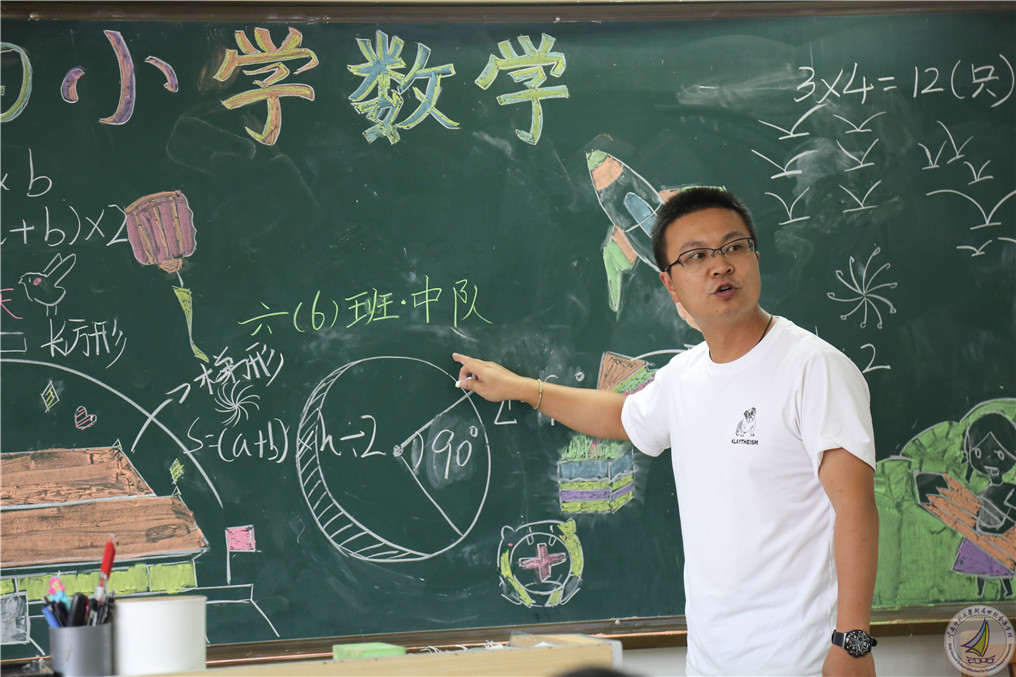 小学数学
3×4=12(只)
×b
+b)×2
六(6)班·中队
长方形
梯形
S=(a+b)×h÷2
90°
2
KLAYTHEISM